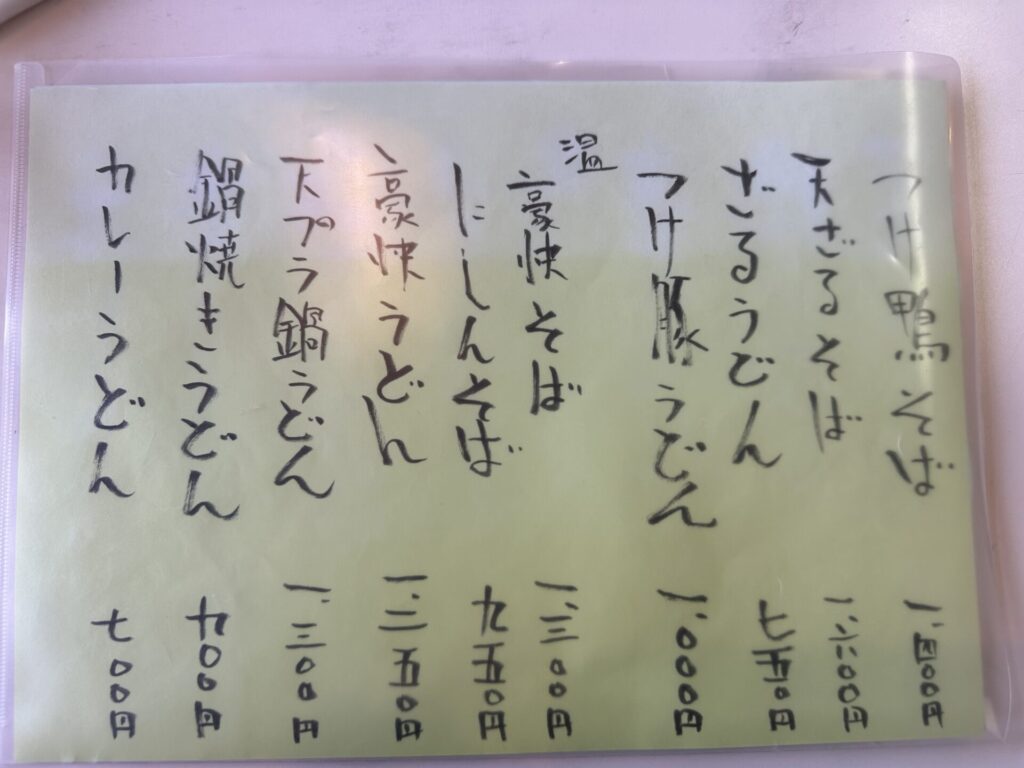 つけ鴨そば 一、四〇〇円
天ざるそば 一、六〇〇円
ざるうどん 七五〇円
つけ豚うどん 一、〇〇〇円
温
豪快そば 一、三〇〇円
にしんそば 九五〇円
豪快うどん 一、二五〇円
天プラ鍋うどん 一、三〇〇円
鍋焼きうどん 九〇〇円
カレーうどん 七〇〇円